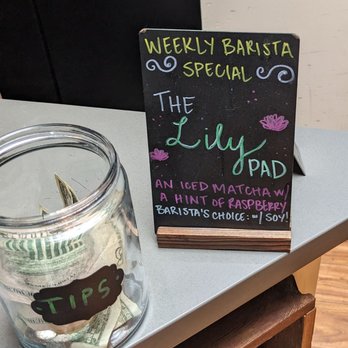 WEEKLY BARISTA
SPECIAL
THE
Lily
PAD
AN ICED MATCHA W/
A HINT OF RASPBERRY
BARISTA'S CHOICE: w/ SOY!
TIPS